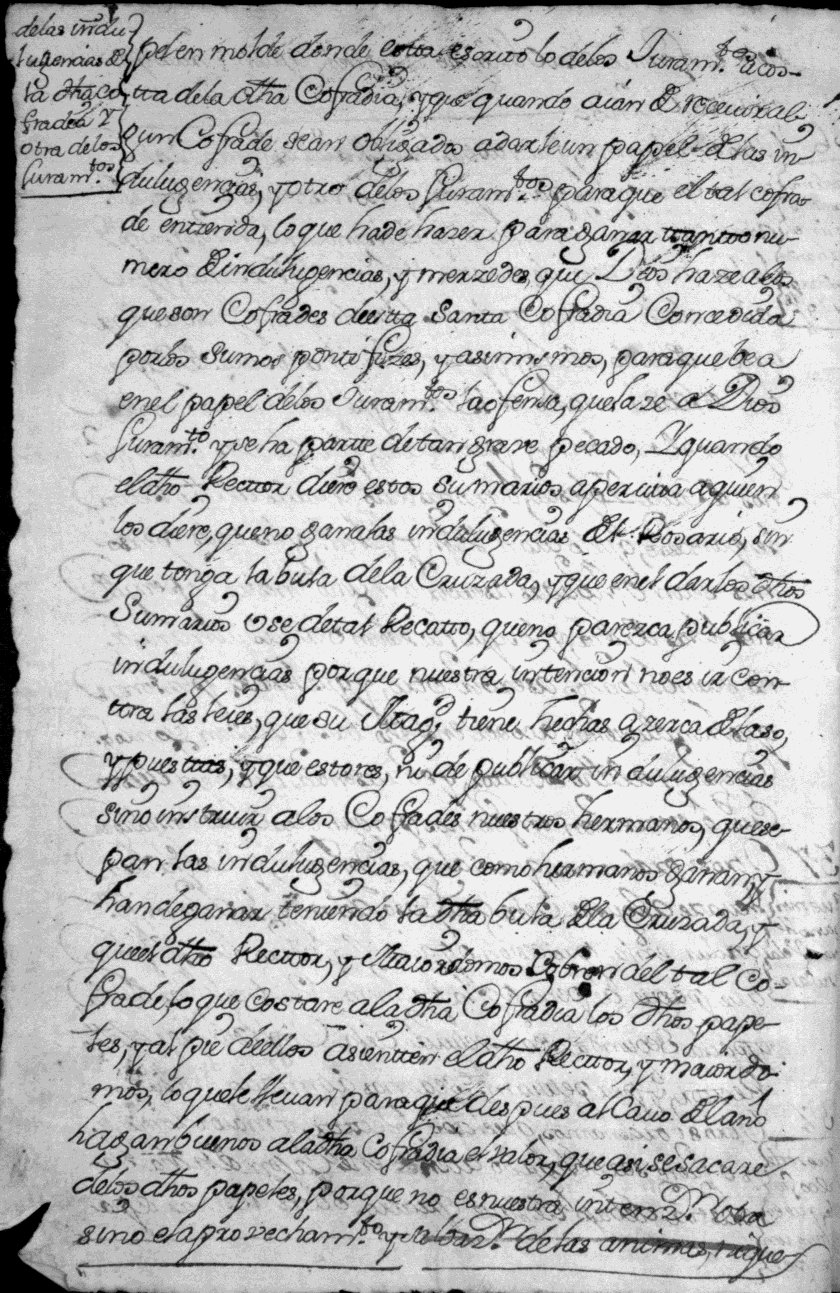 delas indu
lugencias de
la dha co
fradia y
otra delos
Juramtos
pel en molde donde esta escrito lo delos Juramtos a cos-
tta dela dha Cofradia, y que quando aian de receuir al
gun Cofrade sean obligados a darle un papel de las in
dulugencias, y otro delos Juramtos para que el tal cofra
de entienda, lo que hade hazer para ganar ttantto nu-
mero de indulugencias, y merzedes, que Dios haze a los
que son Cofrades de estta Santa Cofradia Concedida
por los Sumos pontifizes, y asimismos, para que bea
en el papel delos Juramtos la ofensa, que haze a Dios
Juramto y se ha partte de tan graue pecado, Y quando
el dho Recttor diere estos sumarios aperciua a quien
los diere, que no gana las indulugencias del Rosario, sin
que tenga la bula dela Cruzada, y que en el darlos dhos
Sumarios use de tal Recatto, que no parezca publicar
indulugencias porque nuestra intencion no es ir con-
ttra las leies, que su Magd tiene hechas azerca de laso,
y puesttas, y que esto es, ni de publicar indulugencias
sino instruir a los Cofrades nuestros hermanos, que se-
pan las indulugencias, que como hermanos ganan, y
han de ganar teniendo la dha bula de la Cruzada, y
que el dho Recttor, y Maiordomos Cobren del tal Co-
frade, lo que costare a la dha Cofradia los dhos pape-
les, y al pie de ellos asientten el dho Recttor, y maiordo
mos, lo que le lleuan para que despues al Cauo de el año
hagan buenos a la dha Cofradia el valor, que asi se sacare
delos dhos papeles, porque no es nuestra intenzn otra
sino el aprovechamto y salbazn de las animas, ni que